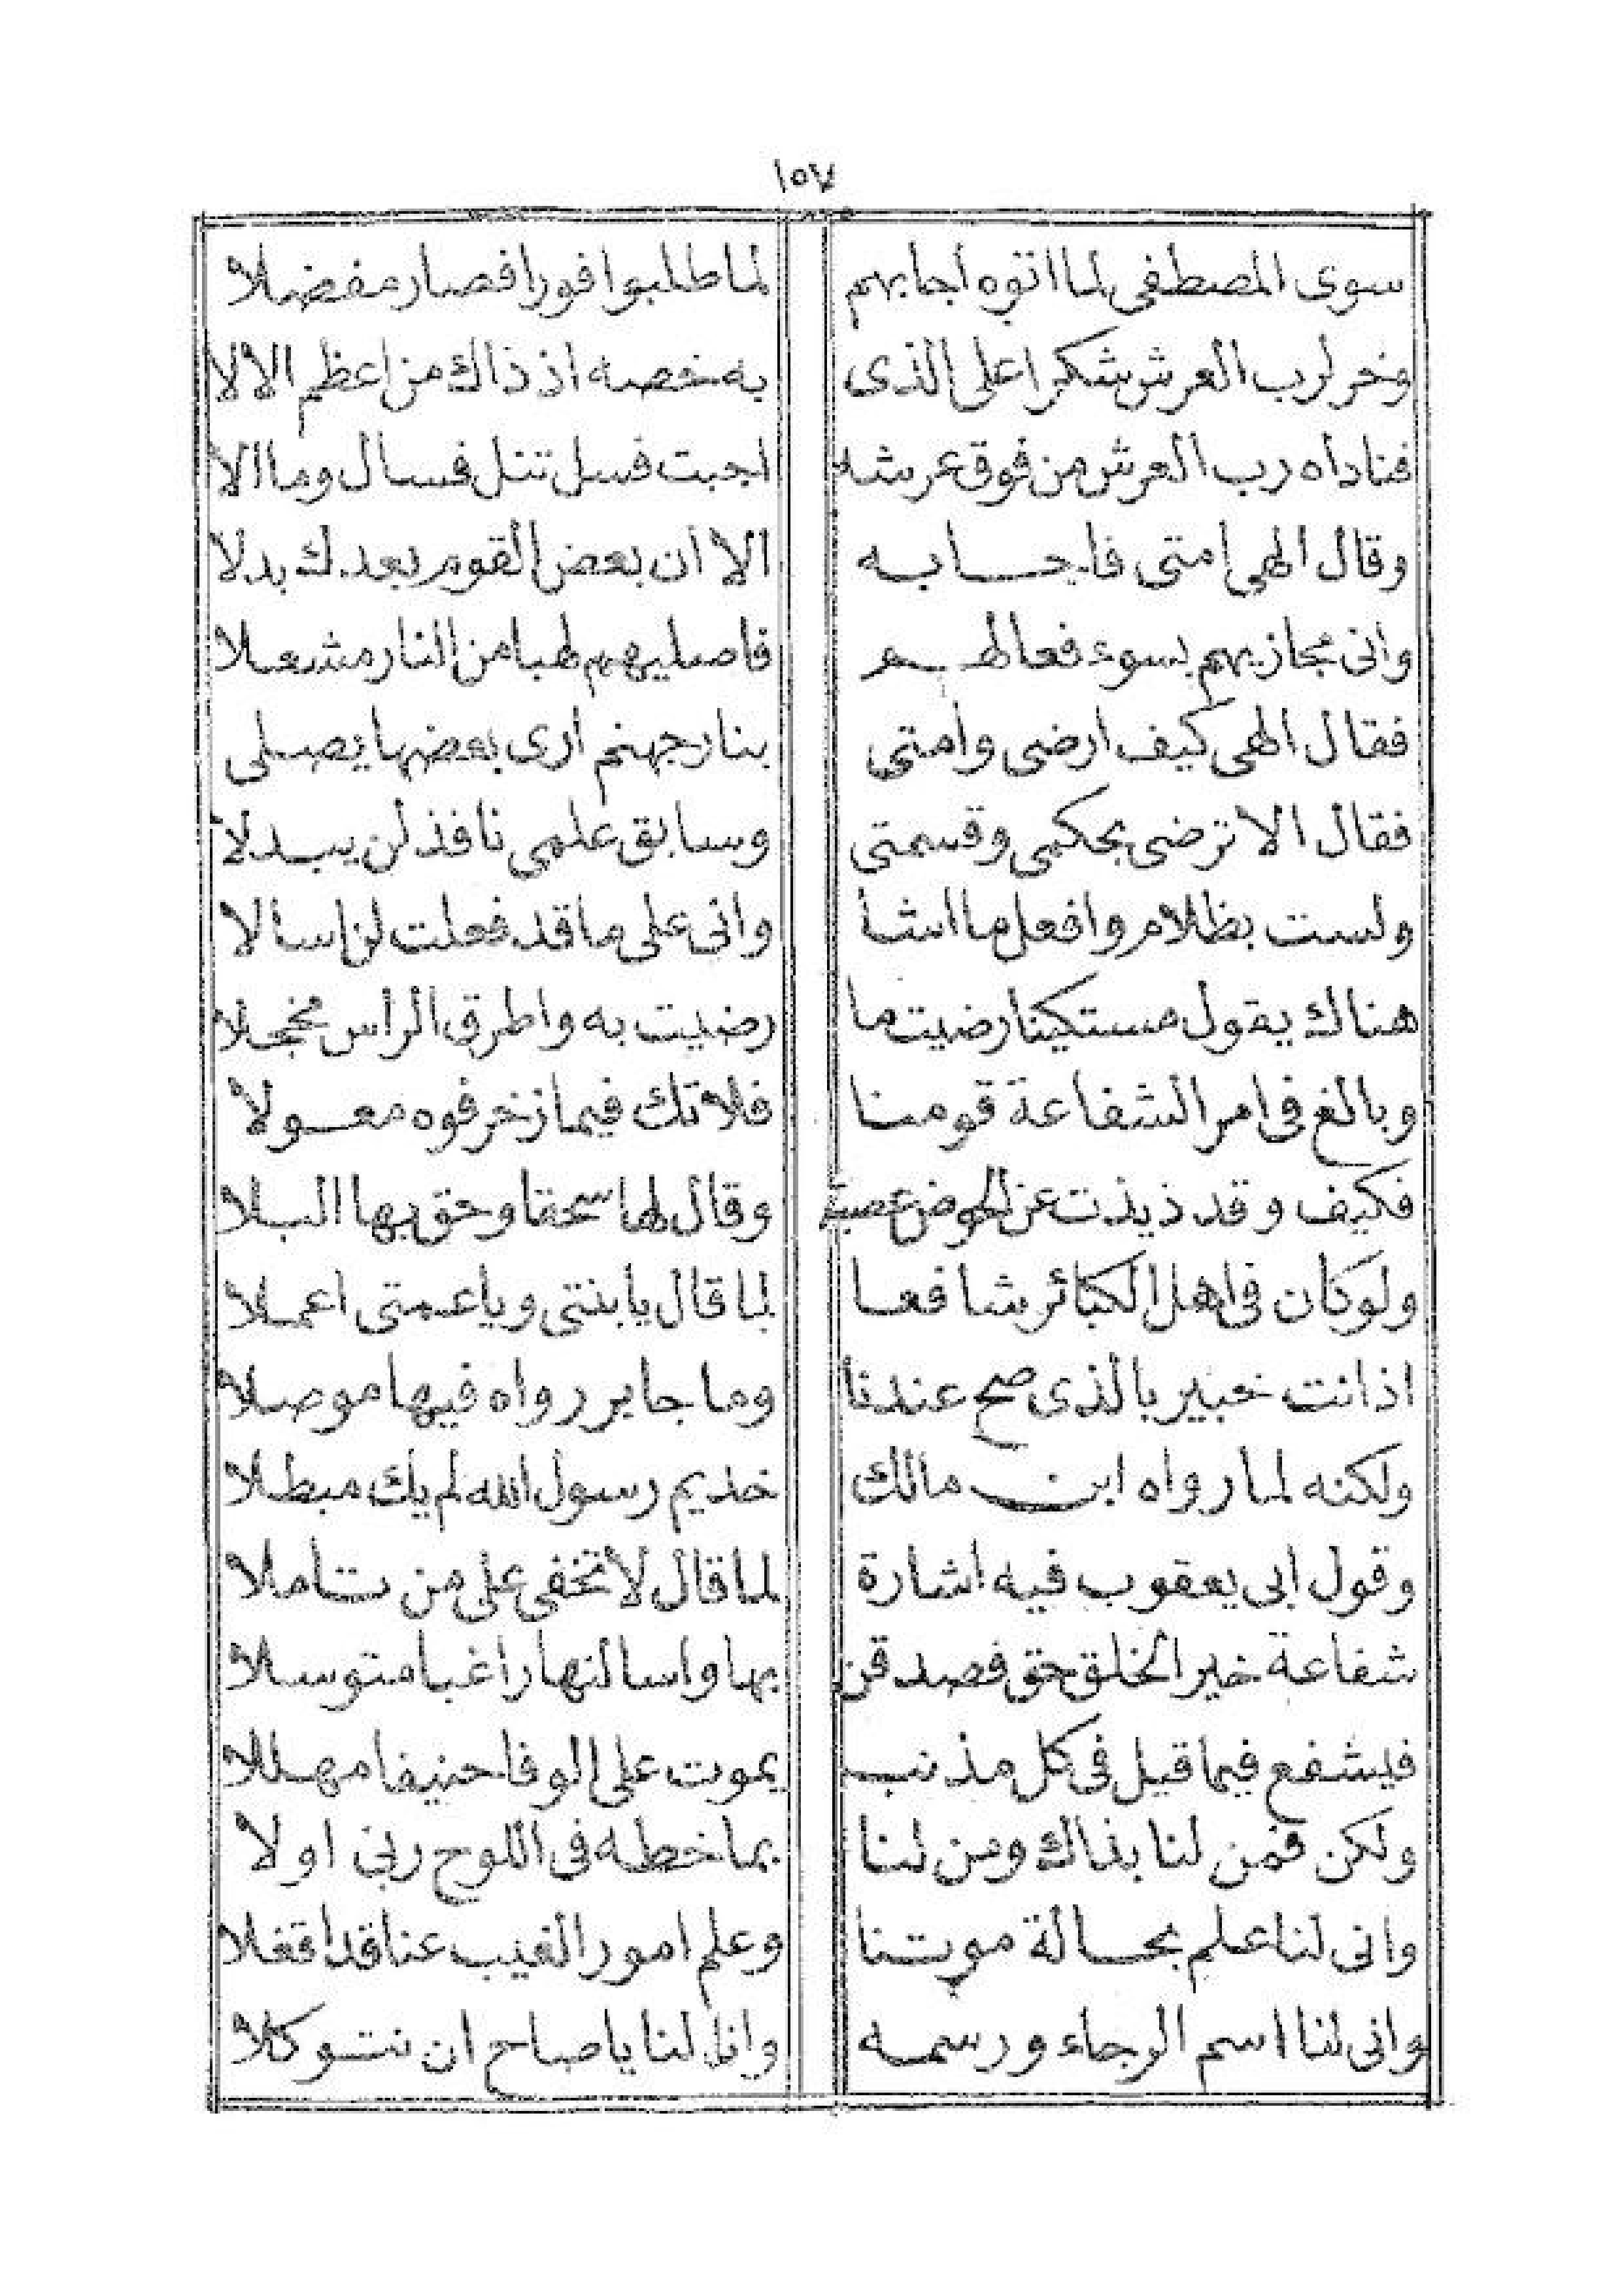 ١٥٧
سوى المصطفى لما اتوه اجابهم لما طلبوا فورا فصار مفضلا
وخر لرب العرش شكرا على الذى به خصه اذ ذاك من اعظم الالا
فناداه رب العرش من فوق عرشه اجبت فسل تنل فسال وما الا
وقال الهى امتى فاجابه الا ان بعض القوم بعدك بدلا
وانى مجازيهم بسوء فعالهم فاصليهم لهبا من النار مشعلا
فقال الهى كيف ارضى وامتى بنار جهنم ارى بعضها يصلى
فقال الا ترضى بحكمى وقسمتى وسابق علمى نافذ لن يبدلا
ولست بظلام وافعل ما اشا وانى على ما قد فعلت لن اسالا
هناك يقول مستكينا رضيت ما رضيت به واطرق الراس مخجلا
وبالغ فى امر الشفاعة قومنا فلا تك فيما زخرفوه معولا
فكيف وقد ذيذت عن الحوض عصبة وقال لها سحقا وحق بها البلا
ولو كان فى اهل الكبائر شافعا لما قال يا بنتى ويا عمتى اعملا
اذا انت خبير بالذى صح عندنا وما جابر رواه فيها موصلا
ولكنه لما رواه ابن مالك خديم رسول الله لم يك مبطلا
وقول ابى يعقوب فيه اشارة لما قال لا تخفى على من تاملا
شفاعة خير الخلق حق فصدقن بها واسالنها راغبا متوسلا
فيشفع فيما قيل فى كل مذنب يموت على الوفا حنيفا مهللا
ولكن فمن لنا بذاك ومن لنا بما خطه فى اللوح ربى اولا
وانى لنا علم بحالة موتنا وعلم امور الغيب عنا قد اقفلا
وانى لنا اسم الرجاء ورسمه وانا لنا يا صاح ان نتوكلا